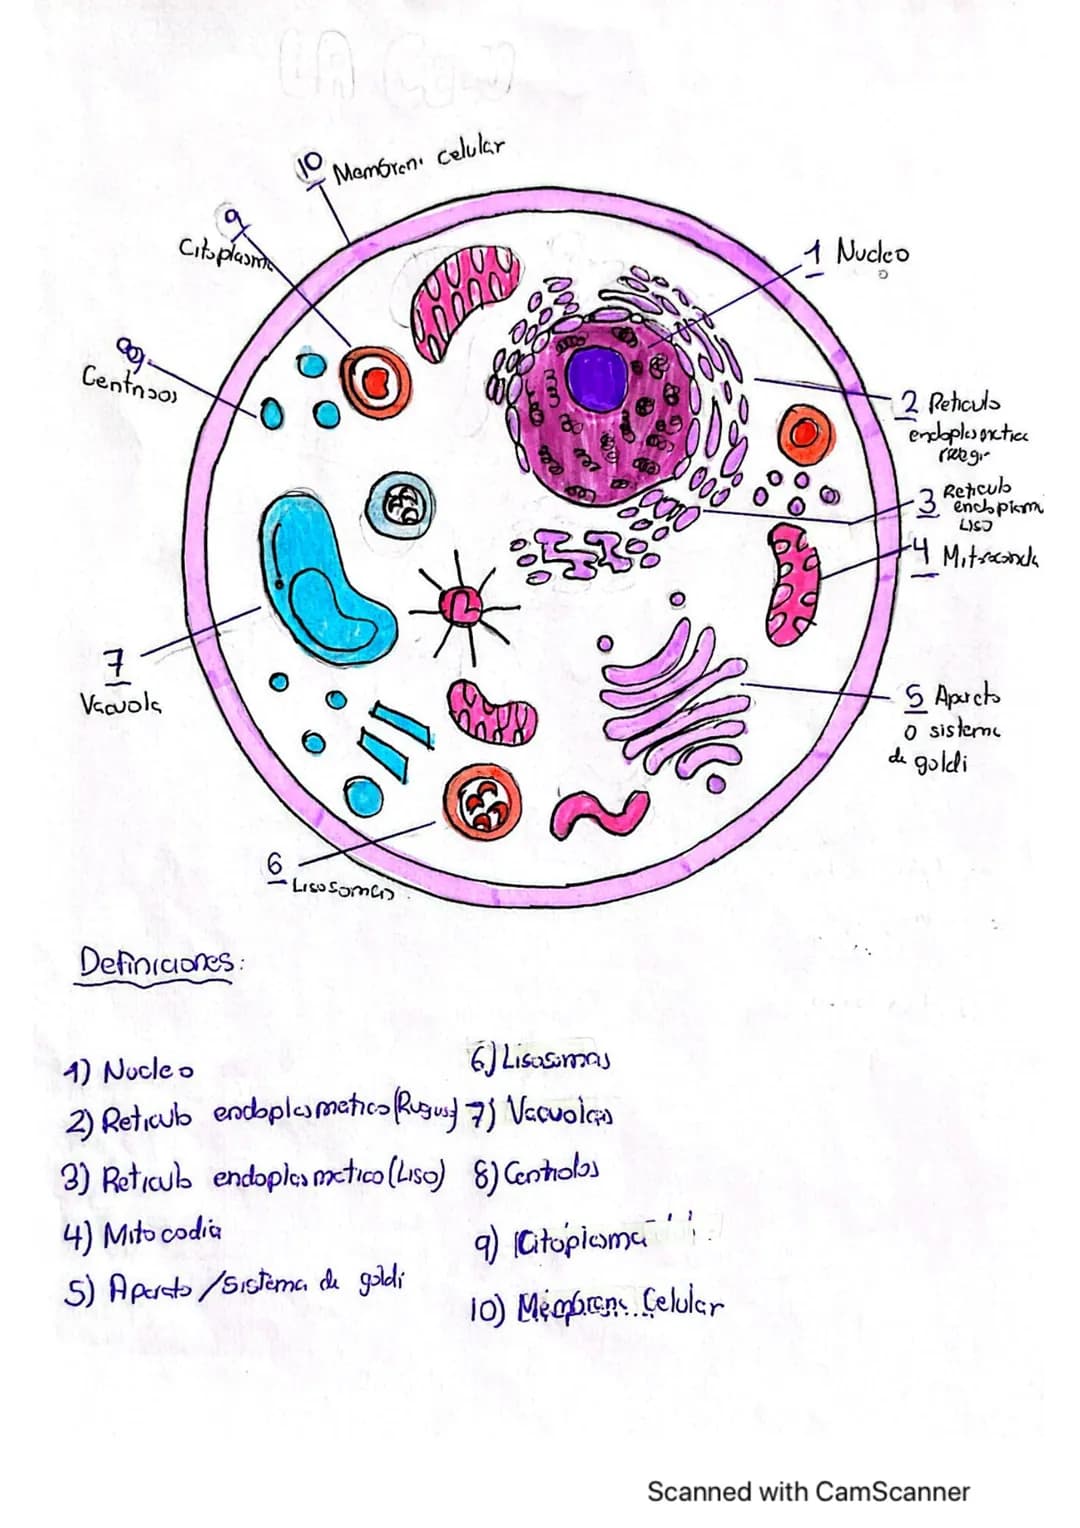 10 Membrana celular
9
Citoplasma
1 Nucleo
8
2 Reticulo
endoplasmatica
3 Reticulo
endoplasm
Liso
4 Mitoconda
7
Vacuola
5 Aparato
o sistema
de goldi
6
Lisosomas
Definiciones:
1) Nucleo
2) Reticulo endoplasmatico (Rugus)
3) Reticulo endoplasmatico (Liso)
4) Mitocodia
5) Aparato /Sistema de goldi
6) Lisosomas
7) Vacuolas
8) Centriolos
9) Citoplasma
10) Membrana Celular
Scanned with CamScanner